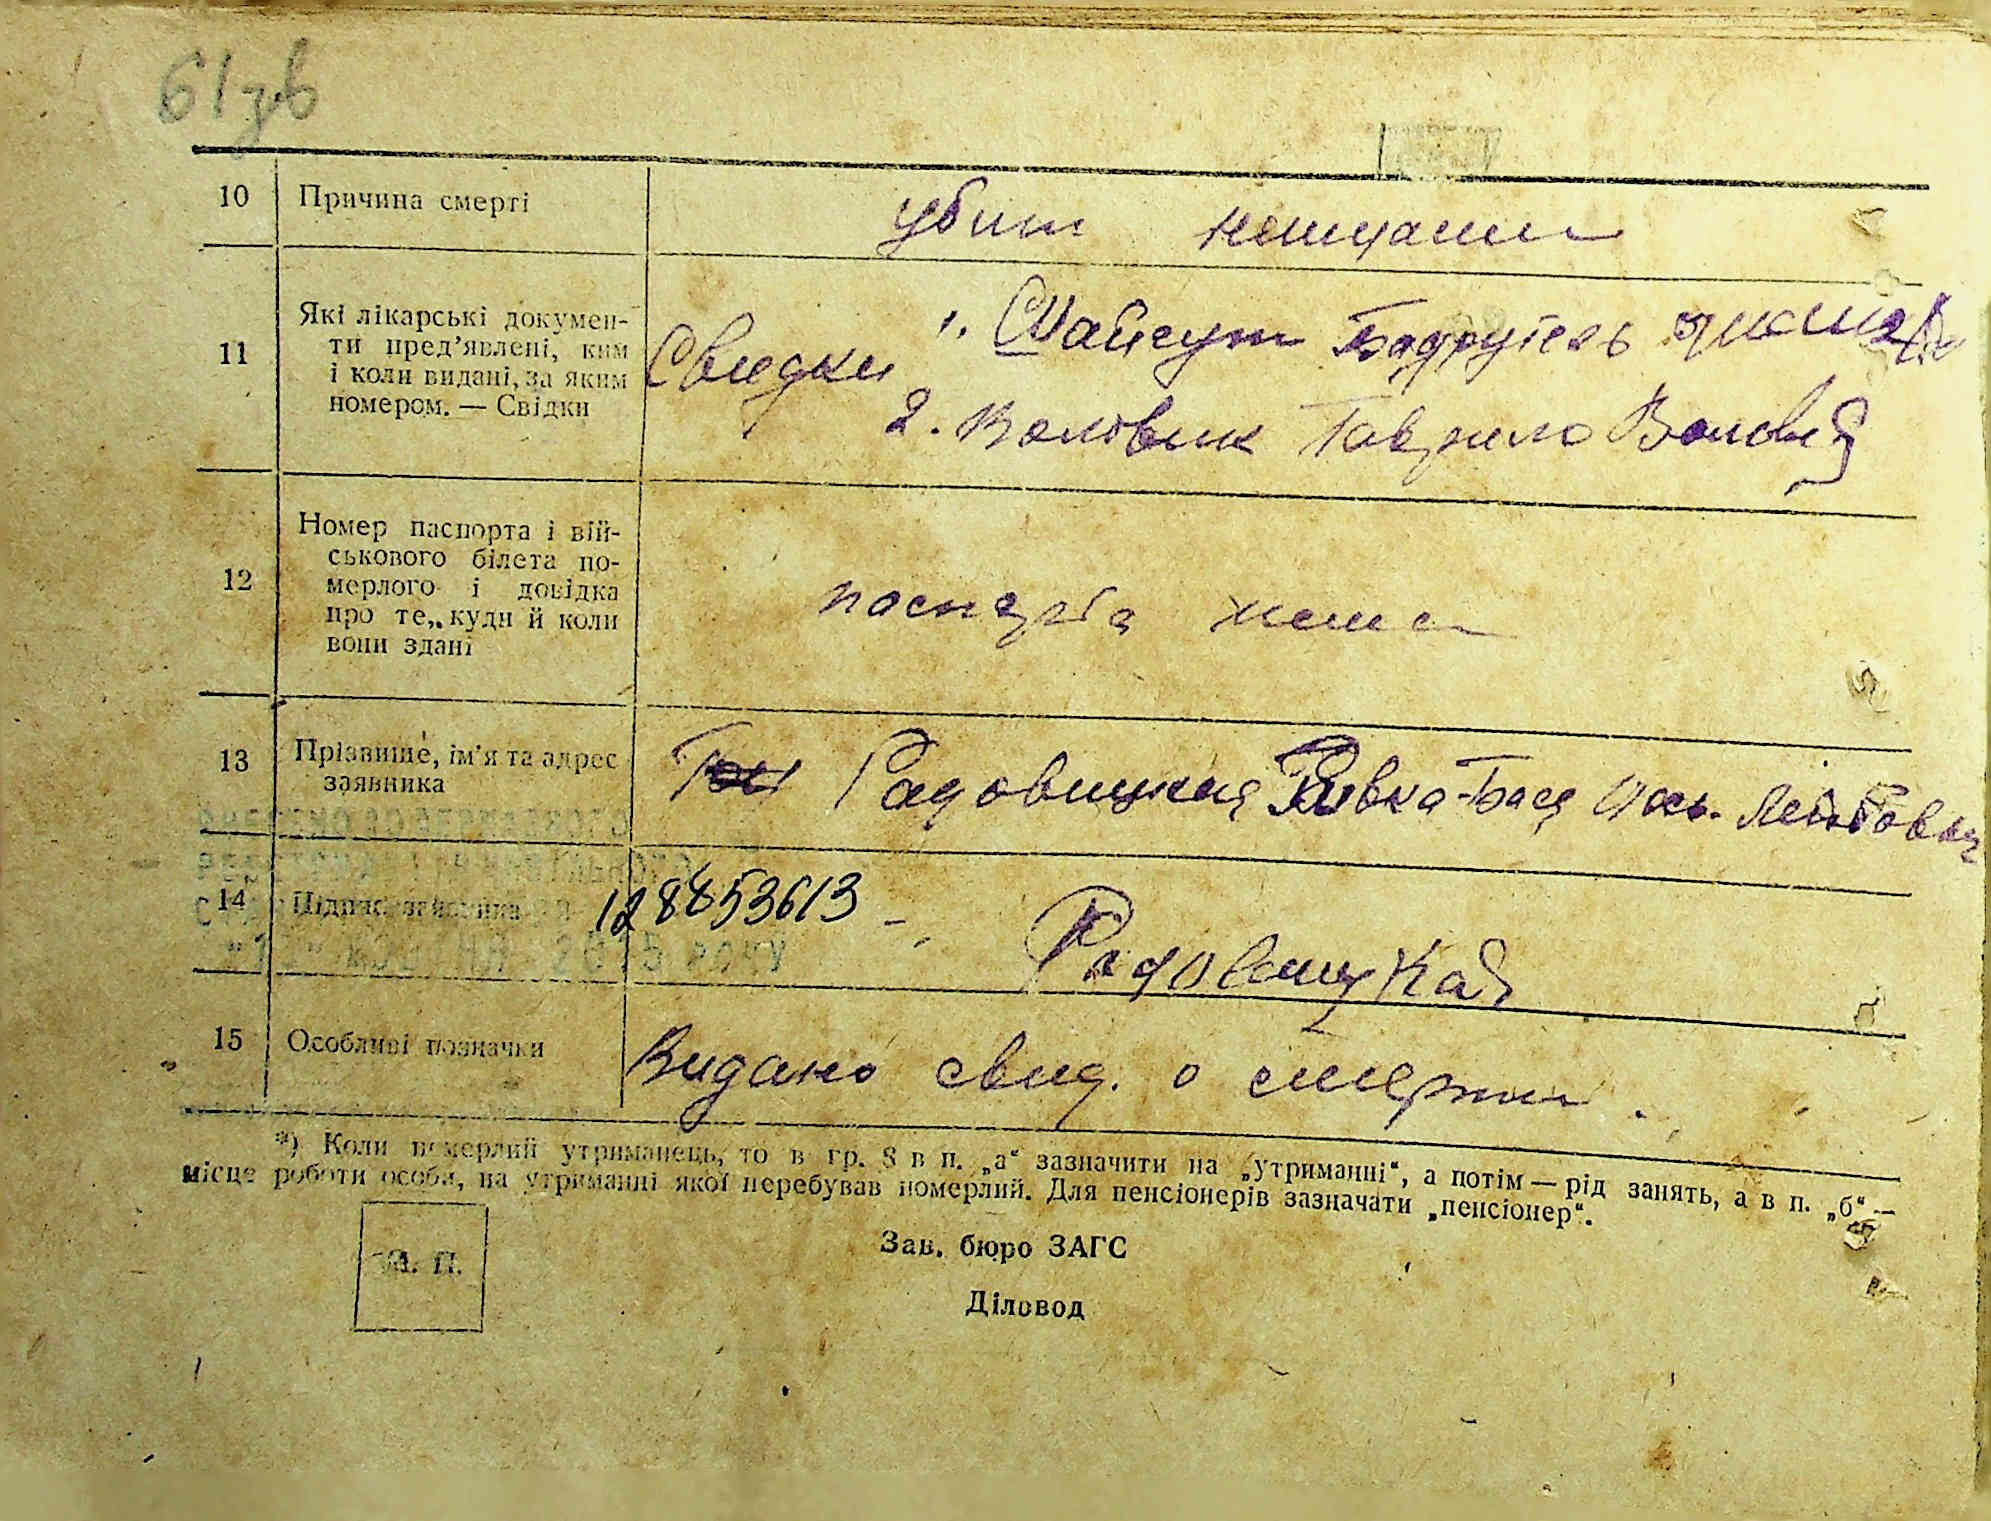 61зв
10 Причина смерті
убит немцами
11 Які лікарські докумен-
ти пред’явлені, ким
і коли видані, за яким
номером. — Свідки
Свидки 1.
2. Воловик Гаврило
12 Номер паспорта і вій-
ськового білета по-
мерлого і довідка
про те, куди й коли
вони здані
паспорта нема
13 Прізвище, ім’я та адрес
заявника
Радовицкая Ривка-Бася
14 Підпис заявника
128853613
Радовицкая
15 Особливі позначки
Видано свид. о смерти.
*) Коли померлий утриманець, то в гр. 8 в п. „а“ зазначити на „утриманні“, а потім — рід занять, а в п. „б“ —
місце роботи особи, на утриманні якої перебував померлий. Для пенсіонерів зазначати „пенсіонер“.
М. П.
Зав. бюро ЗАГС
Діловод